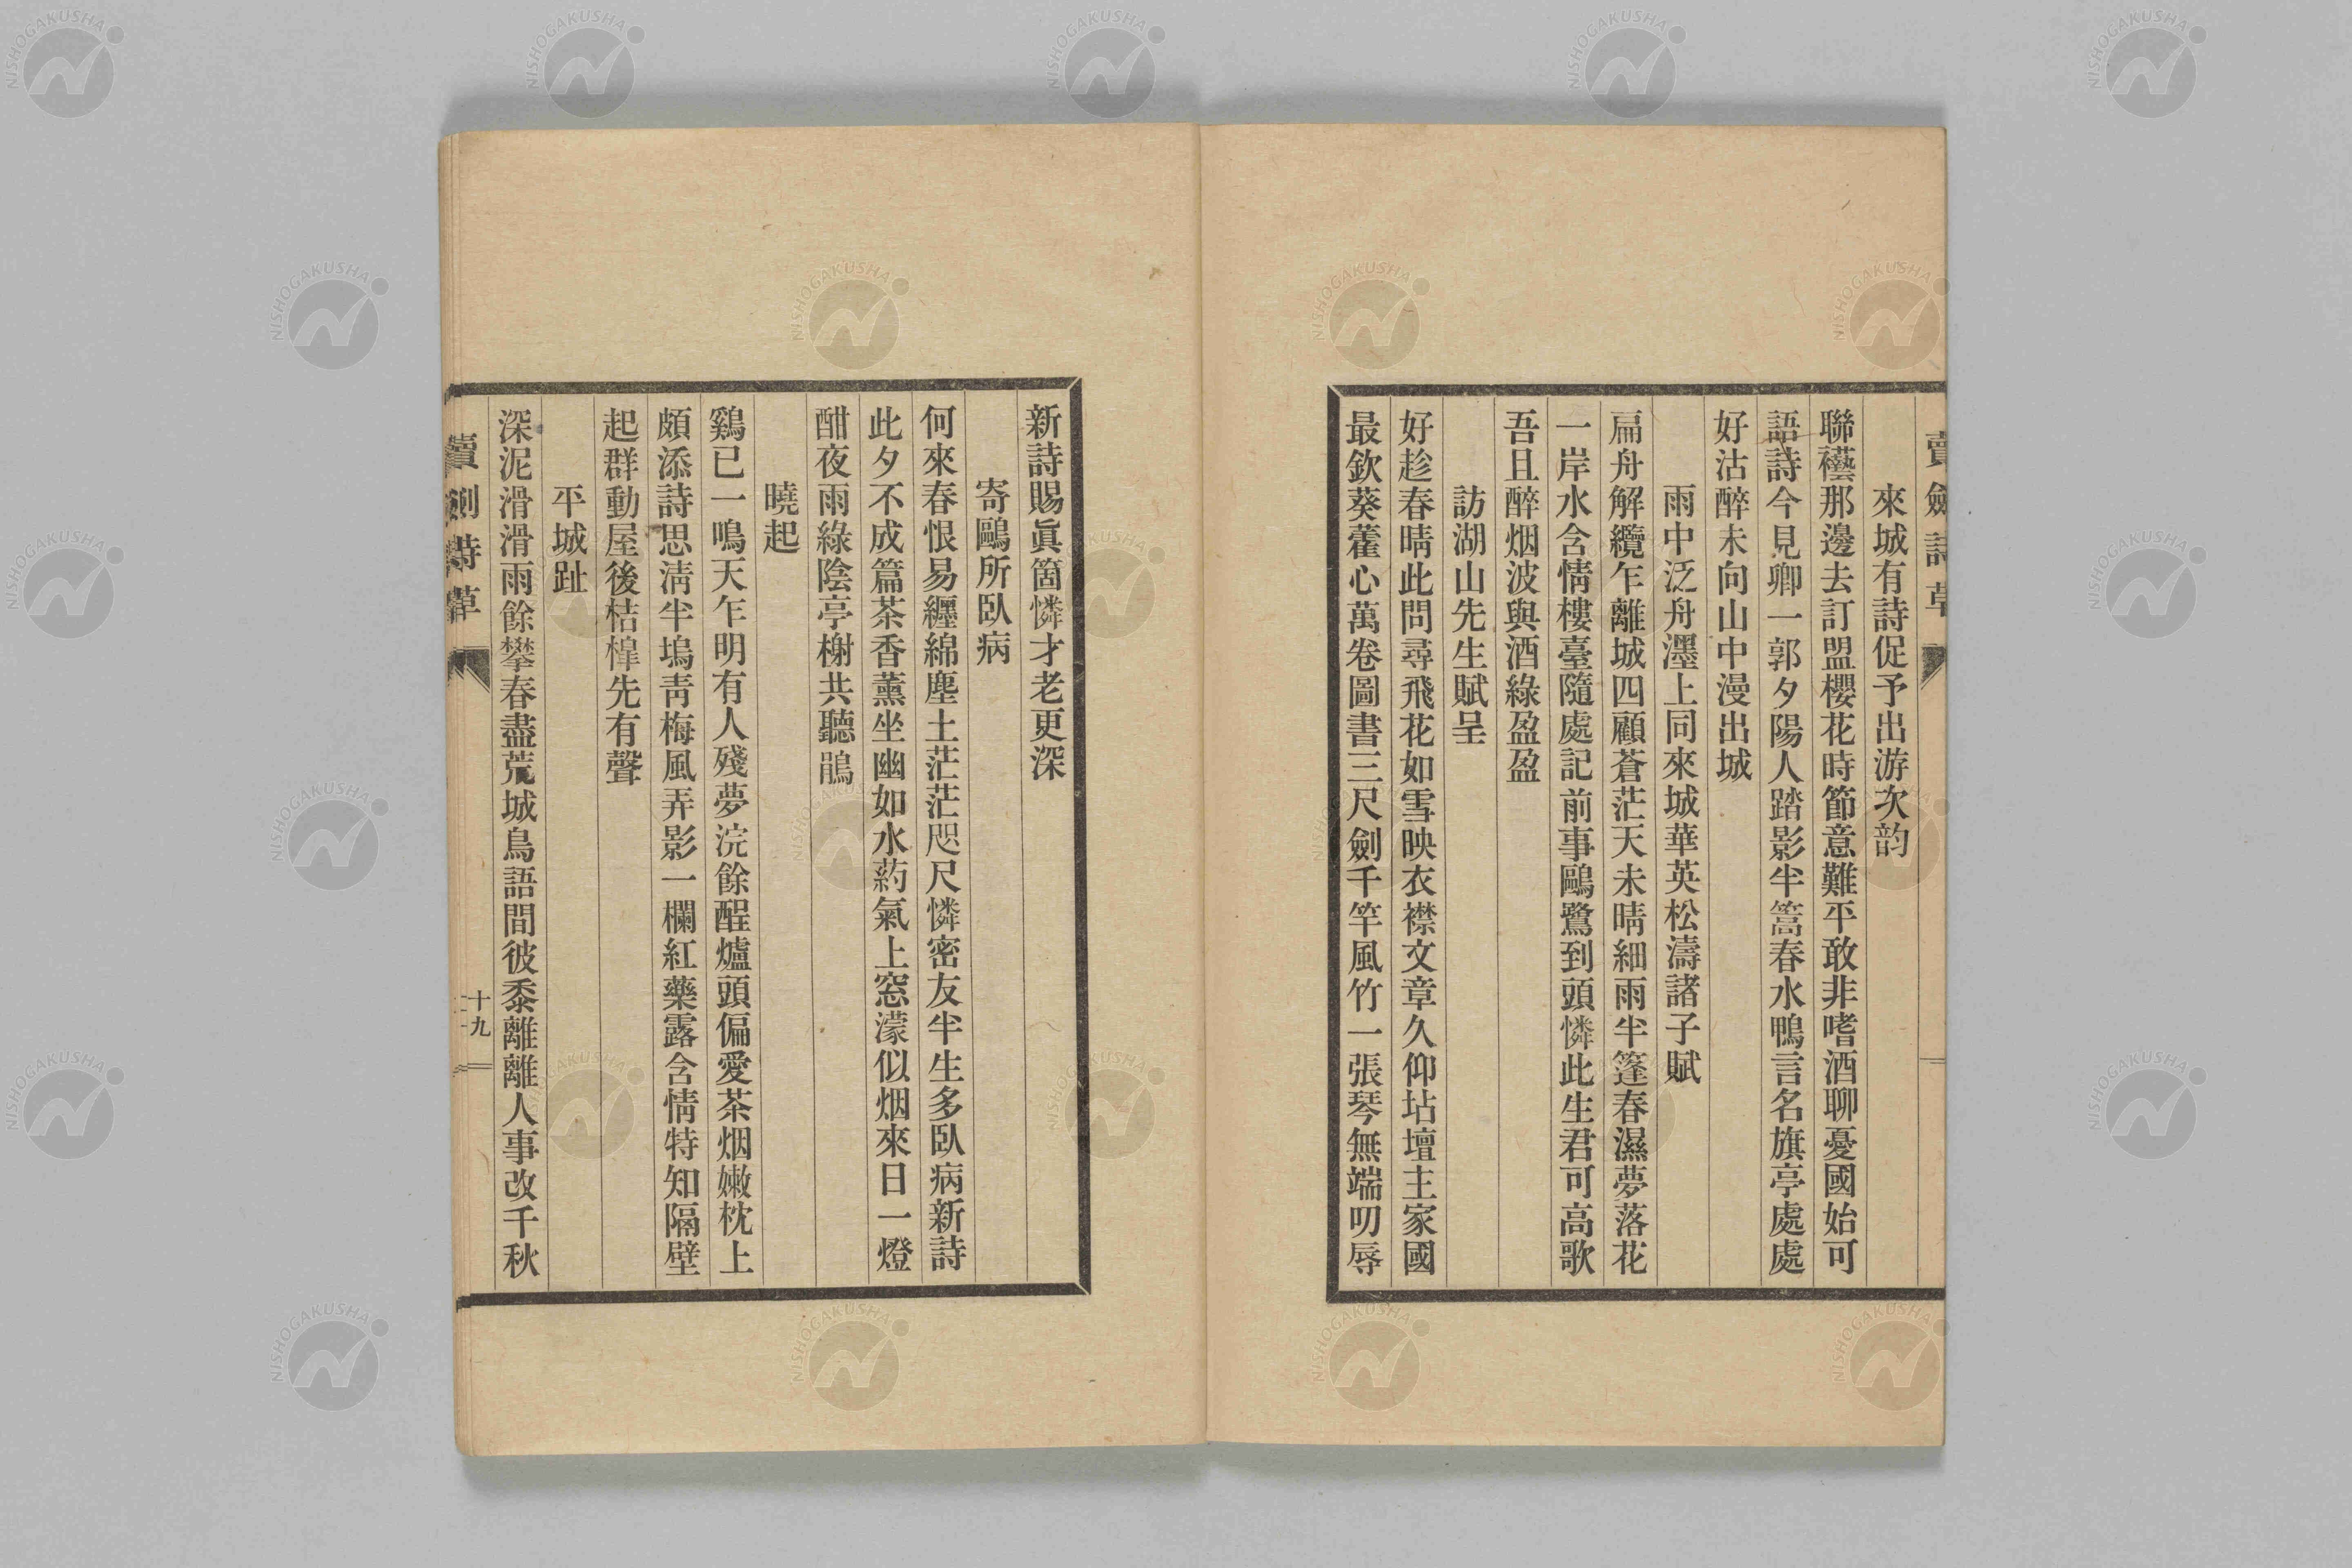 賣劍詩草
來城有詩促予出游次韵
聯襼那邊去訂盟櫻花時節意難平敢非嗜酒聊憂國始可
語詩今見卿一郭夕陽人踏影半篙春水鴨言名旗亭處處
好沽醉未向山中漫出城
雨中泛舟濹上同來城華英松濤諸子賦
扁舟解纜乍離城四顧蒼茫天未晴細雨半篷春濕夢落花
一岸水含情樓臺隨處記前事鷗鷺到頭憐此生君可高歌
吾且醉烟波與酒綠盈盈
訪湖山先生賦呈
好趁春晴此問尋飛花如雪映衣襟文章久仰坫壇主家國
最欽葵藿心萬卷圖書三尺劍千竿風竹一張琴無端叨辱
新詩賜眞箇憐才老更深
寄鷗所臥病
何來春恨易纏綿塵土茫茫咫尺憐密友半生多臥病新詩
此夕不成篇茶香薰坐幽如水葯氣上窓濛似烟來日一燈
酣夜雨綠陰亭榭共聽鵑
曉起
鷄已一鳴天乍明有人殘夢浣餘酲爐頭偏愛茶烟嫩枕上
頗添詩思淸半塢靑梅風弄影一欄紅藥露含情特知隔壁
起群動屋後桔槹先有聲
平城趾
深泥滑滑雨餘攀春盡荒城鳥語間彼黍離離人事改千秋
賣劍詩草
十九
NISHOGAKUSHA